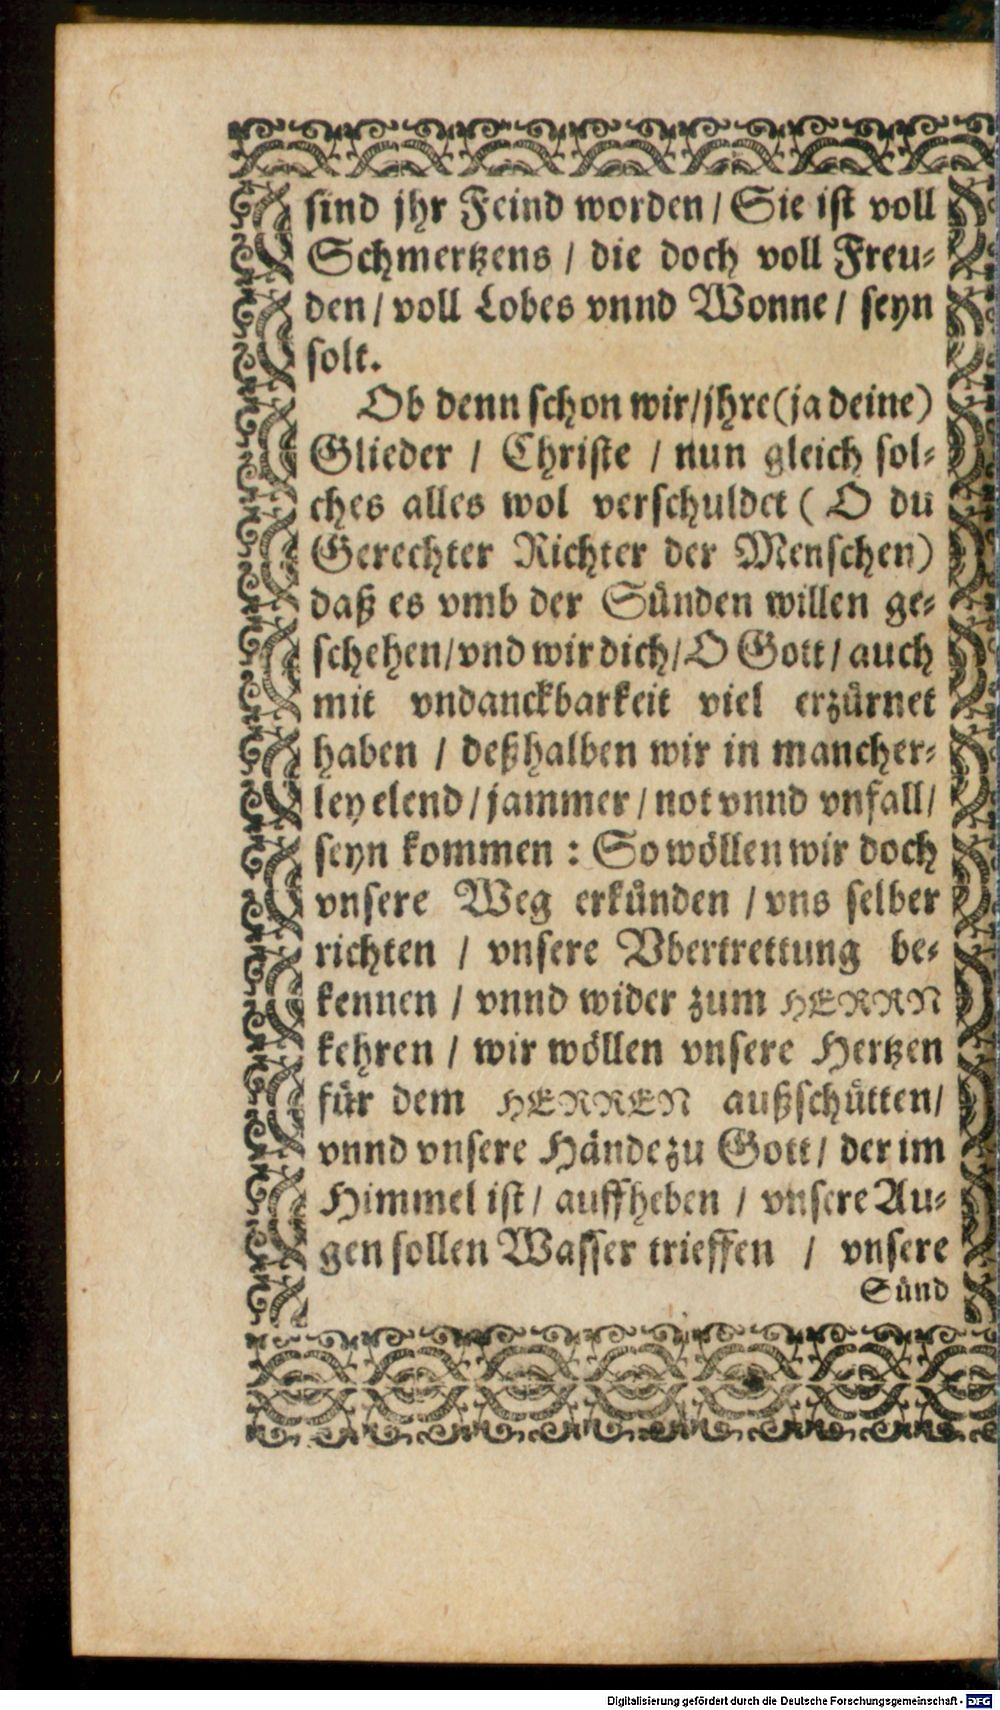 sind jhr Feind worden / Sie ist voll
Schmertzens / die doch voll Freu⸗
den / voll Lobes vnnd Wonne / seyn
solt.
Ob denn schon wir / jhre (ja deine)
Glieder / Christe / nun gleich sol⸗
ches alles wol verschuldet ( O du
Gerechter Richter der Menschen)
daß es vmb der Sünden willen ge⸗
schehen / vnd wir dich / O Gott / auch
mit vndanckbarkeit viel erzürnet
haben / deßhalben wir in mancher⸗
ley elend / jammer / not vnnd vnfall /
seyn kommen : So wöllen wir doch
vnsere Weg erkünden / vns selber
richten / vnsere Vbertrettung be⸗
kennen / vnnd wider zum HERRN
kehren / wir wöllen vnsere Hertzen
für dem HERREN außschütten /
vnnd vnsere Hände zu Gott / der im
Himmel ist / auffheben / vnsere Au⸗
gen sollen Wasser trieffen / vnsere
Sünd
Digitalisierung gefördert durch die Deutsche Forschungsgemeinschaft - DFG